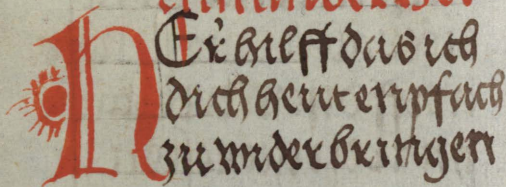 HEr hilff das ich
dich heut enpfach
zu widerbringen